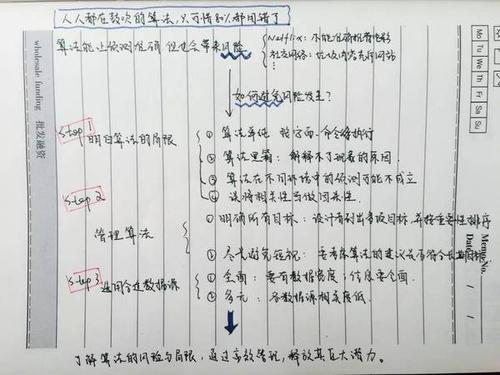 人人都在鼓吹的算法，只可惜80%都用错了
算法能让预测准确，但也会带来风险
Netflix：不能准确推荐电影
社交网络：
如何避免风险发生？
Step 1
明白算法的局限
① 算法单纯 按字面命令执行
② 算法黑箱：解释不了现象的原因
③ 算法在不同环境中的预测可能不成立
④ 误将相关性当做因果性
Step 2
管理算法
① 明确所有目标：设计者列出多项目标，并按重要性排序
② 尽量避免短视：要考虑算法的建议是否符合长期目标
Step 3
选用合适数据源
① 全面：要有数据宽度；信息要全面
② 多元：各数据源相关度低
了解算法的风险与局限，通过有效管理，释放其巨大潜力。
wholesale funding 批发融资
Mo Tu We Th Fr Sa Su
Memo No.
Date / /